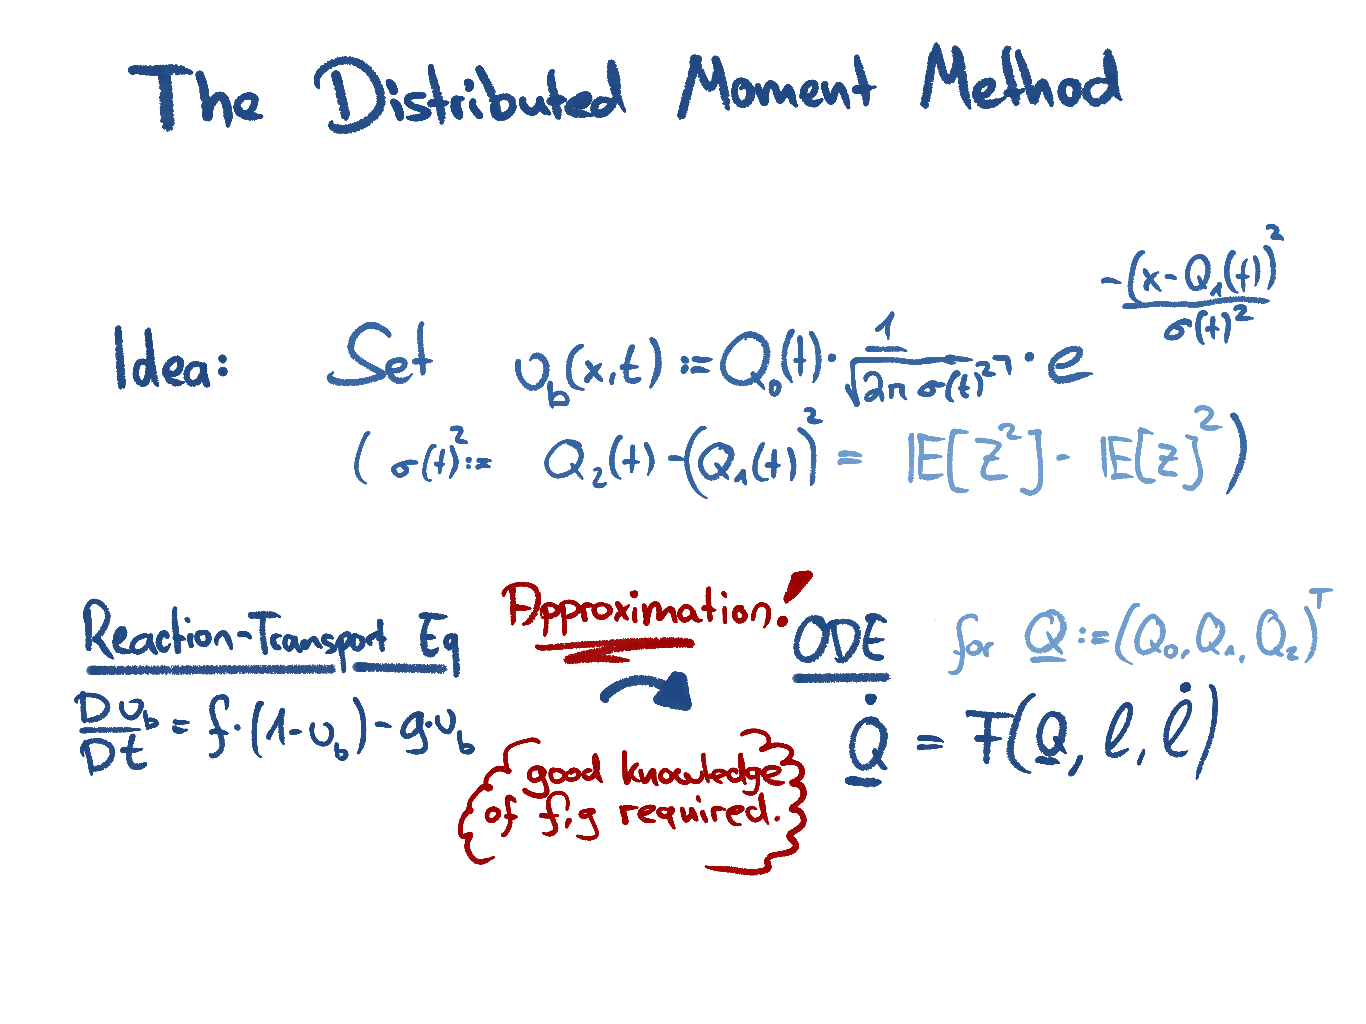 The Distributed Moment Method
Idea: Set υ_b(x,t) := Q₀(t) · 1/√(2π σ(t)²) · e^(-(x-Q₁(t))²/σ(t)²)
(σ(t)² := Q₂(t) - (Q₁(t))² = 𝔼[Z²] - 𝔼[Z]²)
Reaction-Transport Eq
Dυ_b/Dt = f·(1-υ_b) - g·υ_b
Approximation!
good knowledge
of f,g required.
ODE for Q := (Q₀, Q₁, Q₂)ᵀ
Q̇ = F(Q, ℓ, ℓ̇)